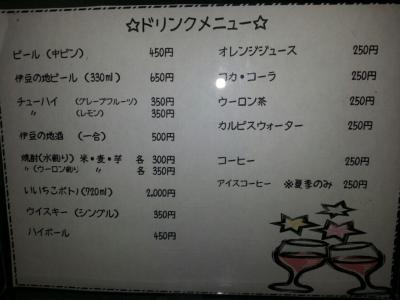 ☆ドリンクメニュー☆
ビール（中ビン） 450円
伊豆の地ビール（330ml） 650円
チューハイ （グレープフルーツ） 350円
〃 （レモン） 350円
伊豆の地酒 （一合） 500円
焼酎（水割り）米・麦・芋 各 300円
〃（ウーロン割り 〃 各 350円
いいちこボトル（720ml） 2,000円
ウイスキー（シングル） 350円
ハイボール 450円
オレンジジュース 250円
コカ・コーラ 250円
ウーロン茶 250円
カルピスウォーター 250円
コーヒー 250円
アイスコーヒー ※夏季のみ 250円